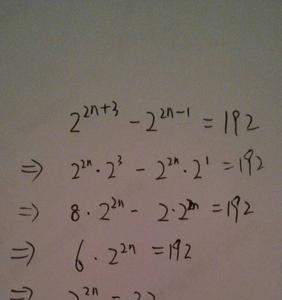 2^{2n+3} - 2^{2n-1} = 192
⇒ 2^{2n} · 2^3 - 2^{2n} · 2^1 = 192
⇒ 8 · 2^{2n} - 2 · 2^{2n} = 192
⇒ 6 · 2^{2n} = 192
⇒ 2^{2n} = 32